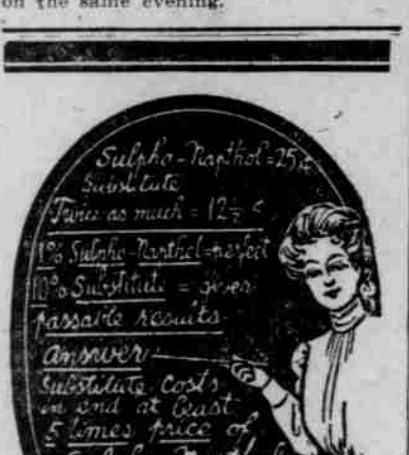 on the same evening.
Sulpho-Napthol=25¢
Substitute
Twice as much = 12½ ¢
1% Sulpho-Napthol=perfect
10% Substitute = gives
passable results
answer
Substitute costs
in end at least
5 times price of
Sulpho-Napthol